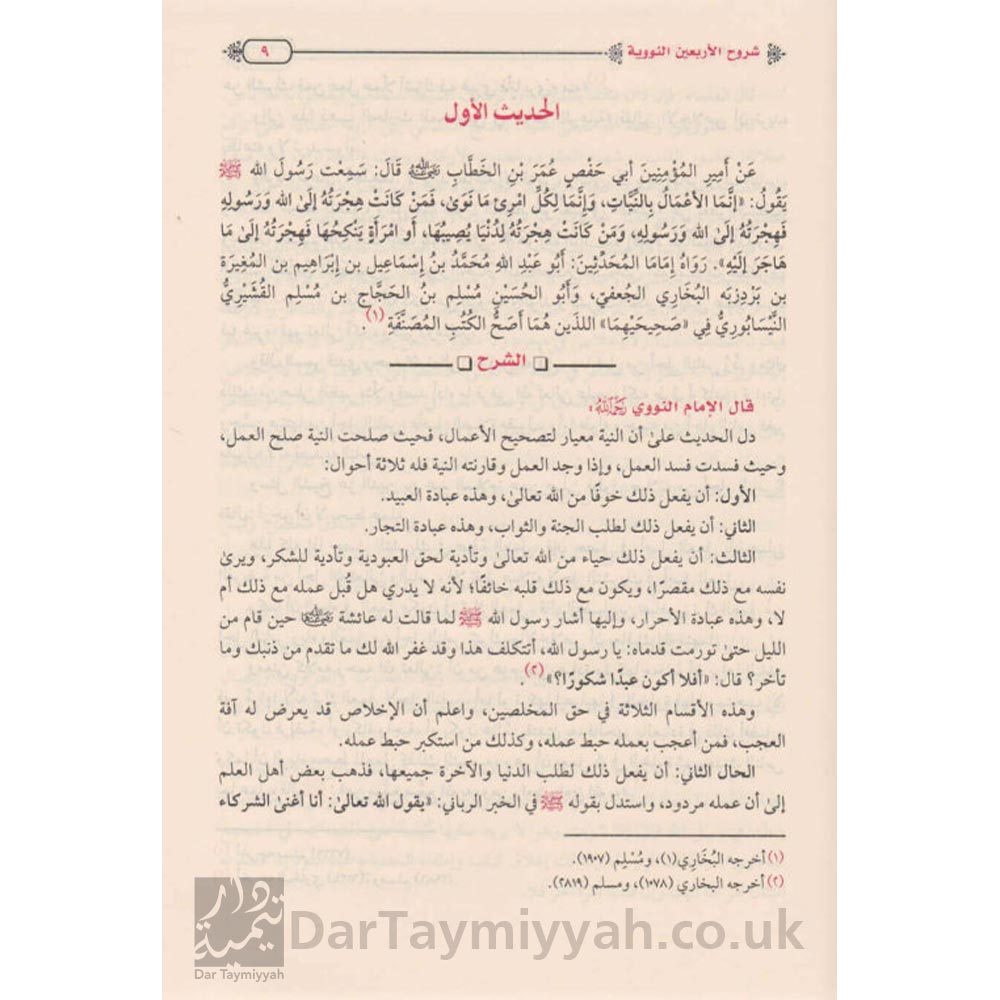 شروح الأربعين النووية
٩
الحديث الأول
عَنْ أَمِيرِ المُؤْمِنِينَ أبي حَفْصٍ عُمَرَ بْنِ الخَطَّابِ رضي الله عنه قَالَ: سَمِعْت رَسُولَ الله ﷺ
يَقُولُ: «إنَّمَا الأَعْمَالُ بِالنِّيَّاتِ، وَإِنَّمَا لِكُلِّ امْرِئٍ مَا نَوَىٰ، فَمَنْ كَانَتْ هِجْرَتُهُ إلَىٰ الله وَرَسُولِهِ
فَهِجْرَتُهُ إلَىٰ الله وَرَسُولِهِ، وَمَنْ كَانَتْ هِجْرَتُهُ لِدُنْيَا يُصِيبُهَا، أَو امْرَأَةٍ يَنْكِحُهَا فَهِجْرَتُهُ إلَىٰ مَا
هَاجَرَ إلَيْهِ». رَوَاهُ إمَامَا المُحَدِّثِينَ: أَبُو عَبْدِ اللهِ مُحَمَّدُ بنُ إِسْمَاعِيل بن إِبْرَاهِيم بن المُغِيرَة
بن بَرْدِزبَه البُخَارِي الجُعفيّ، وَأَبُو الحُسَيْنِ مُسْلِم بنُ الحَجَّاج بن مُسْلِم القُشَيْرِيُّ
النَّيْسَابُورِيُّ فِي «صَحِيحَيْهِمَا» اللذَين هُمَا أَصَحُّ الكُتُبِ المُصَنَّفَةِ (١).
الشرح
قال الإمام النووي رحمه الله:
دل الحديث علىٰ أن النية معيار لتصحيح الأعمال، فحيث صلحت النية صلح العمل،
وحيث فسدت فسد العمل، وإذا وجد العمل وقارنته النية فله ثلاثة أحوال:
الأول: أن يفعل ذلك خوفًا من الله تعالىٰ، وهذه عبادة العبيد.
الثاني: أن يفعل ذلك لطلب الجنة والثواب، وهذه عبادة التجار.
الثالث: أن يفعل ذلك حياء من الله تعالىٰ وتأدية لحق العبودية وتأدية للشكر، ويرىٰ
نفسه مع ذلك مقصرًا، ويكون مع ذلك قلبه خائفًا؛ لأنه لا يدري هل قُبل عمله مع ذلك أم
لا، وهذه عبادة الأحرار، وإليها أشار رسول الله ﷺ لما قالت له عائشة رضي الله عنها حين قام من
الليل حتىٰ تورمت قدماه: يا رسول الله، أتتكلف هذا وقد غفر الله لك ما تقدم من ذنبك وما
تأخر؟ قال: «أفلا أكون عبدًا شكورًا؟» (٢).
وهذه الأقسام الثلاثة في حق المخلصين، واعلم أن الإخلاص قد يعرض له آفة
العجب، فمن أعجب بعمله حبط عمله، وكذلك من استكبر حبط عمله.
الحال الثاني: أن يفعل ذلك لطلب الدنيا والآخرة جميعها، فذهب بعض أهل العلم
إلىٰ أن عمله مردود، واستدل بقوله ﷺ في الخبر الرباني: «يقول الله تعالىٰ: أنا أغنىٰ الشركاء
(١) أخرجه البُخَارِي(١)، ومُسْلِم (١٩٠٧).
(٢) أخرجه البخاري (١٠٧٨)، ومسلم (٢٨١٩).
دار تيمية
Dar Taymiyyah
DarTaymiyyah.co.uk